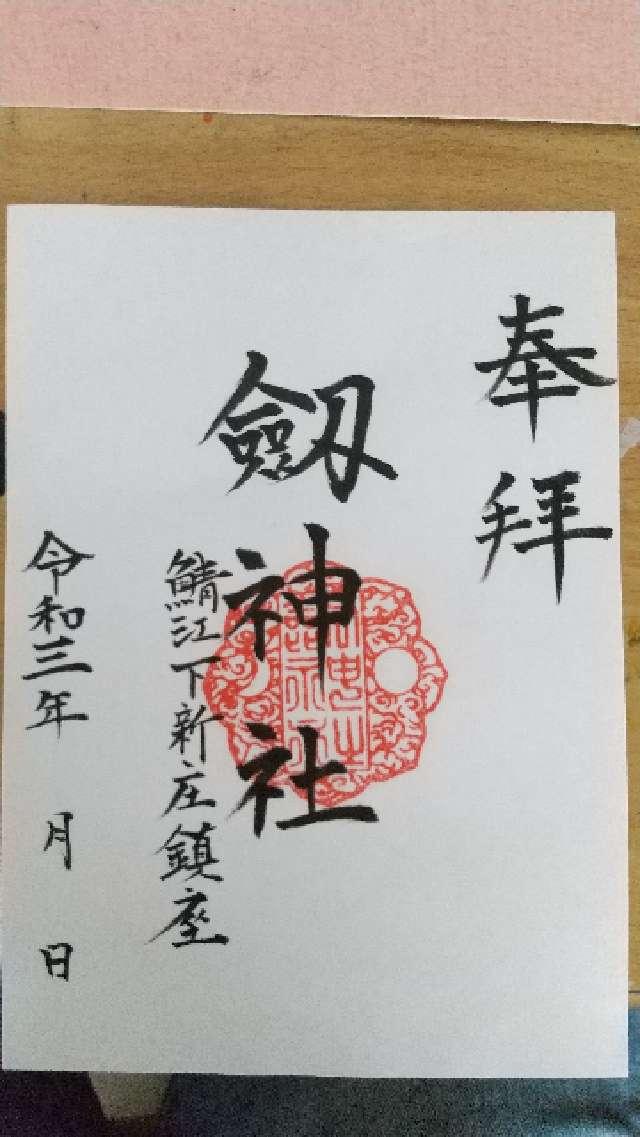 奉拝
劔神社
鯖江下新庄鎮座
令和三年 月 日